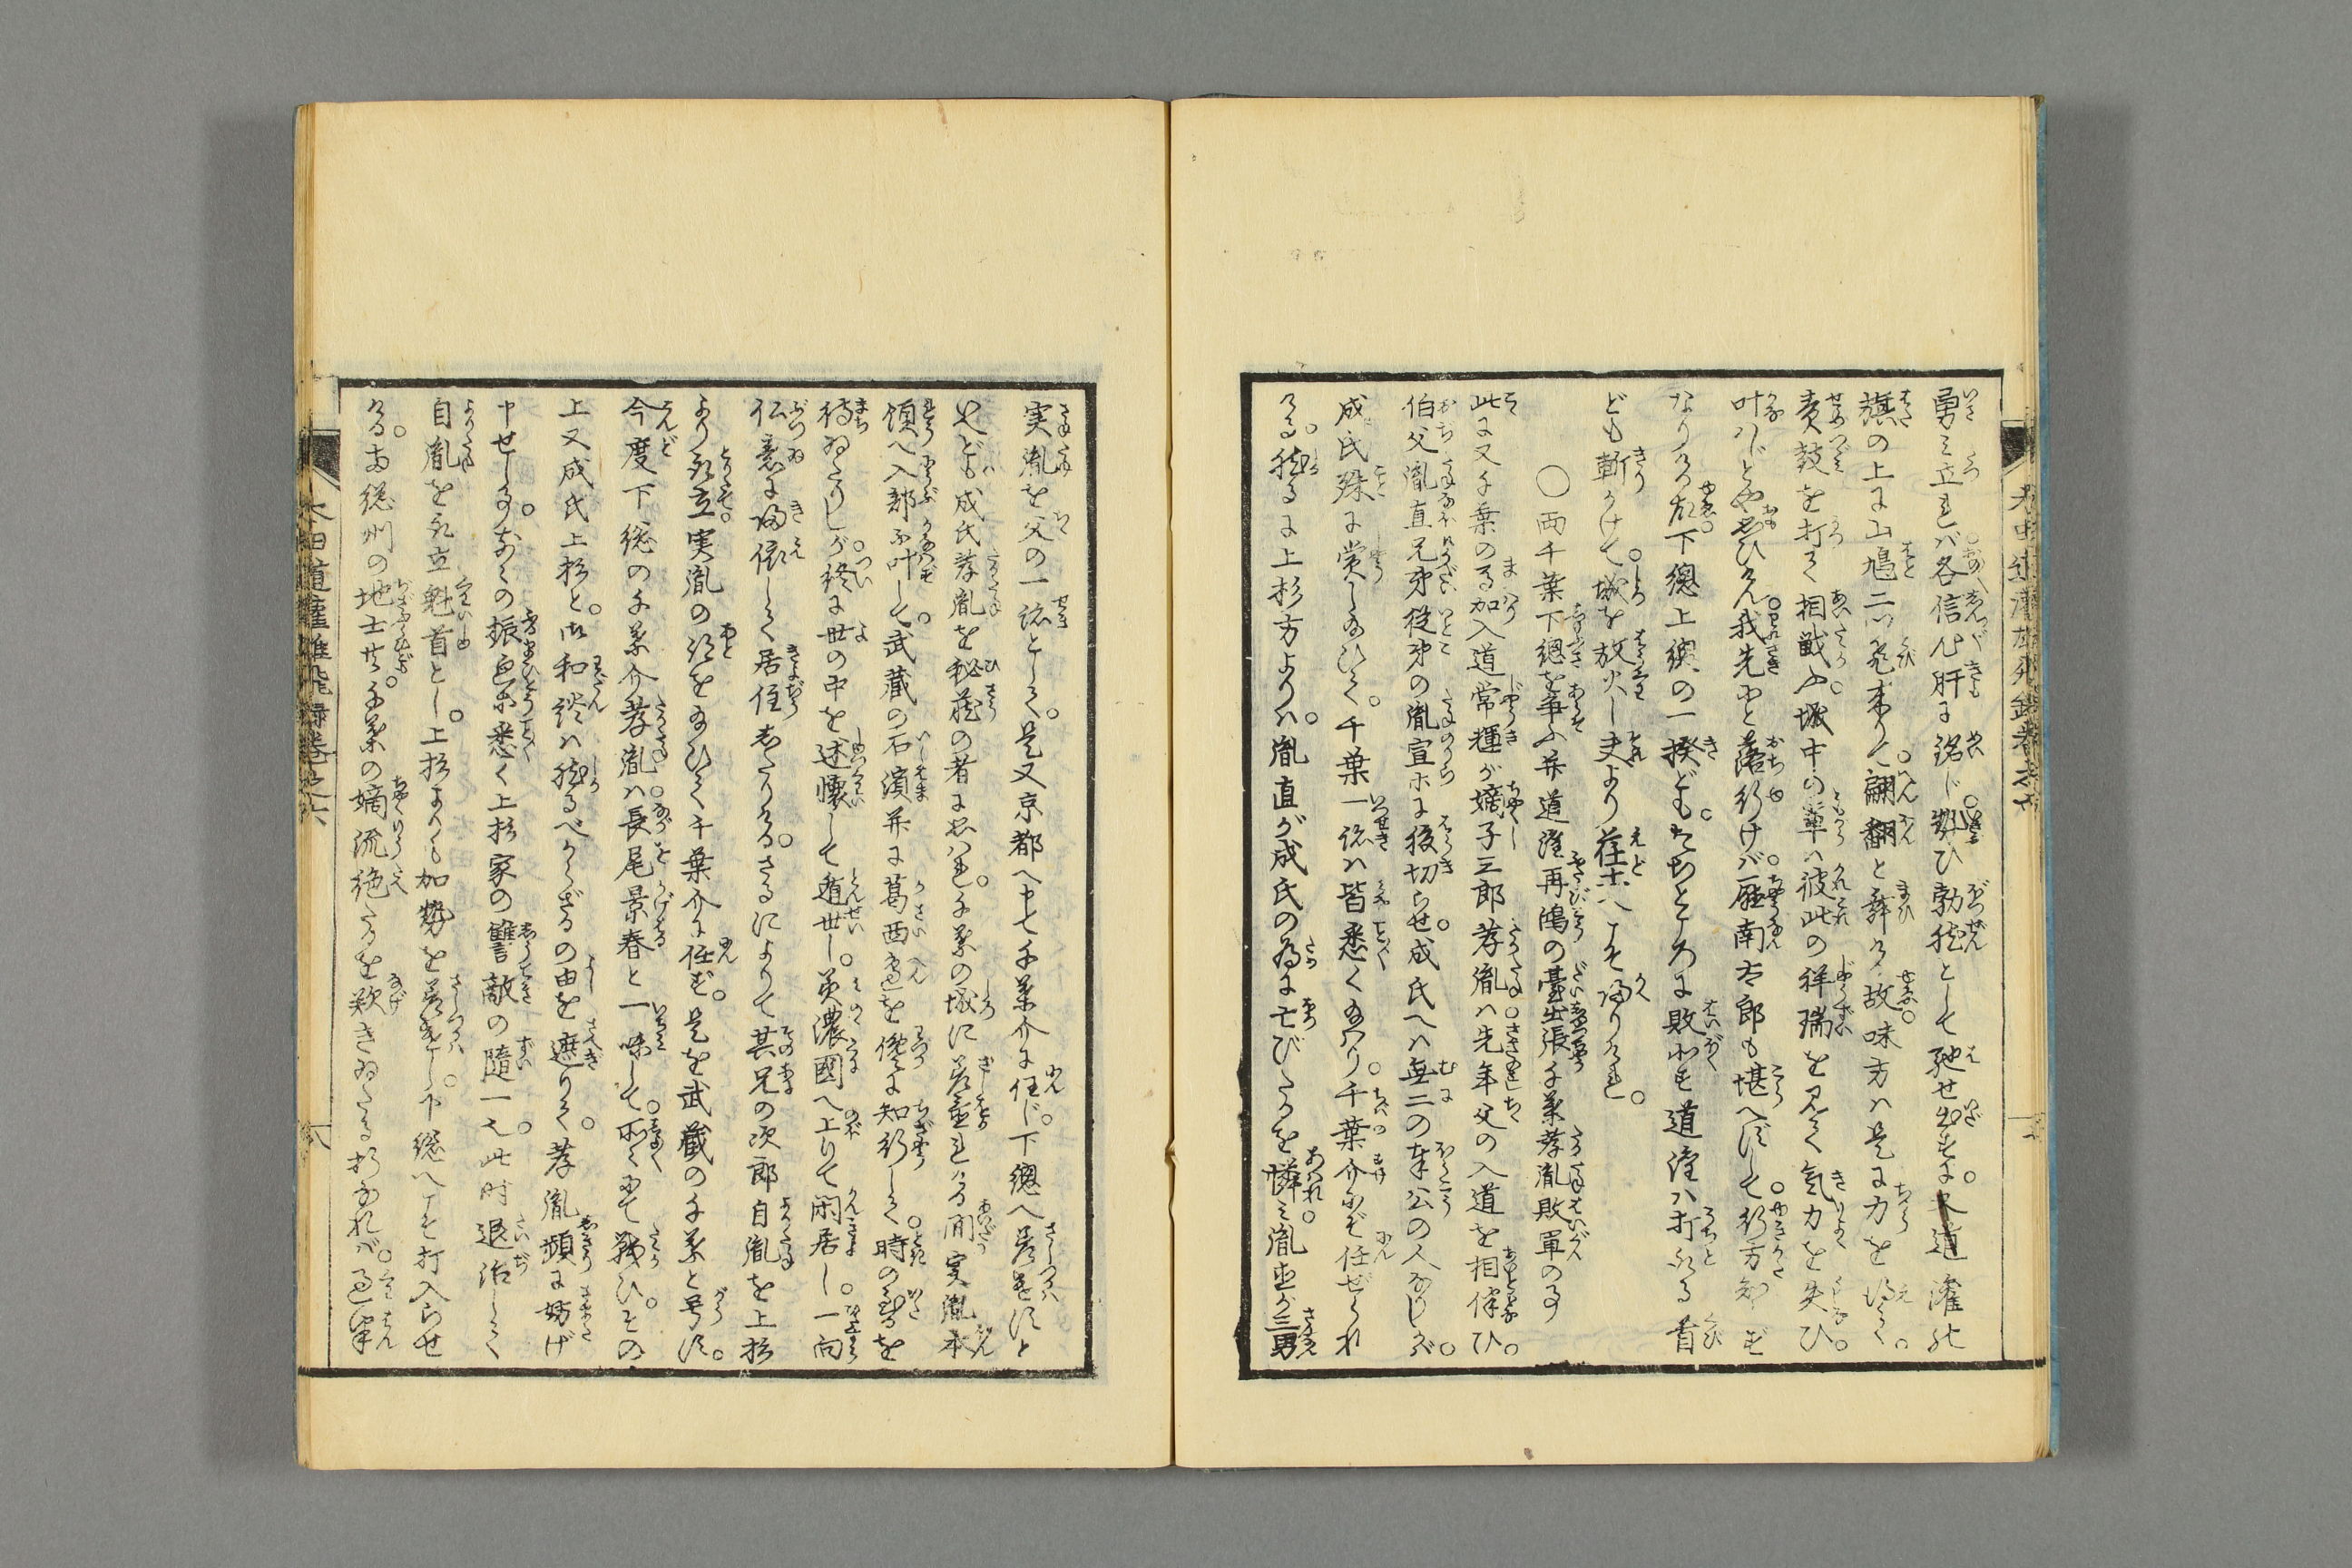 勇み立ば各信心肝に銘じ勢ひ勃然として馳せ出すに道灌が
旗の上に山鳩二つ飛来りて翩翻と舞ふ故味方は是に力を得て
責鼓を打て相戦ふ城中の輩は彼此の祥瑞を見て気力を失ひ
叶はじとや思ひけん我先にと落行けば廰南太郎も堪へずして行方知らず
なりける故下總上總の一揆どもたちどころに敗北す道灌は打取る首
ども斬かけて城を放火し夫より荏土へこそ帰りけれ
○両千葉下總を争ふ并道灌再鴻の臺出張千葉孝胤敗軍の事
此に又千葉の馬加入道常輝が嫡子三郎孝胤は先年父の入道を相伴ひ
伯父胤直兄弟従弟の胤宣等に腹切らせ成氏へは無二の奉公の人なりしが
成氏殊に賞し給ひて千葉一跡は皆悉く給はり千葉介にぞ任ぜられ
ける然るに上杉方よりは胤直が成氏の為に亡びたるを憐み胤直が三男
実胤を父の一跡として是又京都へ申て千葉介に任じ下總へ差遣すと
いへども成氏孝胤を秘蔵の者に思はれ千葉の城に差置れける間実胤本
領へ入部不叶して武蔵の石濱并に葛西邊を僅に知行して時の到るを
待ゐたりしが終に世の中を述懐して遁世し美濃國へ上りて閑居し一向
仏意に帰依して居住したりけるさるによりて其兄の次郎自胤を上杉
より取立実胤の跡を給ひて千葉介に任ず是を武蔵の千葉と号す
今度下総の千葉介孝胤は長尾景春と一味して所々にて戦ひその
上又成氏上杉と御和談は然るべからざるの由を遮りて孝胤頻に妨げ
申せし事などの振色等悉く上杉家の讐敵の随一也此時退治して
自胤を取立魁首とし上杉よりも加勢を差遣し下総へこそ打入らせ
ける南総州の地士共千葉の嫡流絶たるを歎きゐたる折なれば過半
太田道灌雄飛録巻之六
八